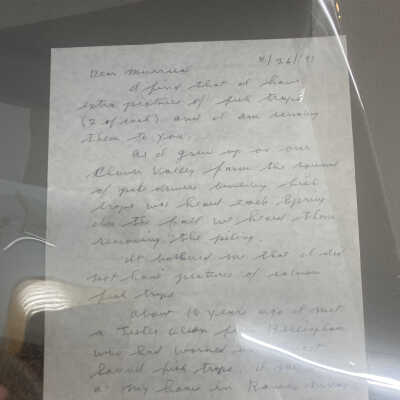 Dear Murriel
I find that I have
extra pictures of fish traps
(2 of each) and I am sending
them to you.
As I grew up on our
Clover Valley farm the sound
of pile drivers building fish
traps was heard each Spring
In the fall we heard them
removing the piling.
It bothered me that I did
not have pictures of salmon
fish traps
About 10 years ago I met
a Lester from Bellingham
who had worked
fish traps.
at my home in